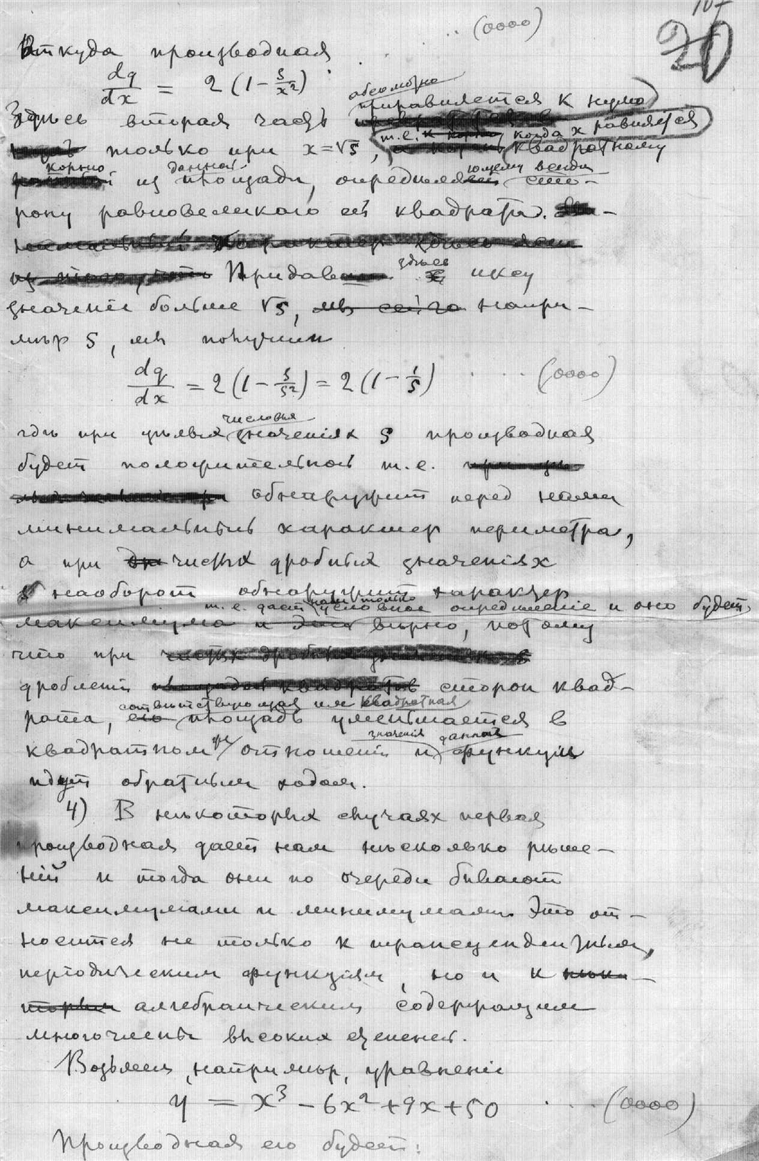 (0000)
20
Откуда производная
dq/dx = 2 (1 - s/x²)
абсолютно
Здесь вторая часть приравняется к нулю
только при x=√s, т.е. когда x равняется квадратному
корню данной
из площади, определяющему всегда сто-
рону равновеликого ей квадрата.
Придавая здесь иксу
значенія больше √s, напри-
мѣр s, мы получим
dq/dx = 2 (1 - s/s²) = 2 (1 - 1/s) (0000)
числовых
где при цѣлых значеніях s производная
будет положительной т.е.
обнаружит перед нами
минимальный характер периметра,
а при чисто дробных значеніях
наоборот обнаружит характер
т.е. дает нам только условное опредѣленіе и оно будет
максимума вѣрно, потому
что при
дробленіи сторон квад-
соотвѣтствующая им квадратная
рата, площадь уменьшается в
квадратном отношеніи и значенія данной функціи
идут обратным ходом.
4) В нѣкоторых случаях первая
производная дает нам нѣсколько рѣше-
ній и тогда они по очереди бывают
максимумами и минимумами. Это от-
носится не только к трансцендентным,
періодическим функціям, но и к
алгебраическим содержащим
многочлены высоких степеней.
Возьмем, например, уравненіе
y = x³ - 6x² + 9x + 50 (0000)
Производная его будет: